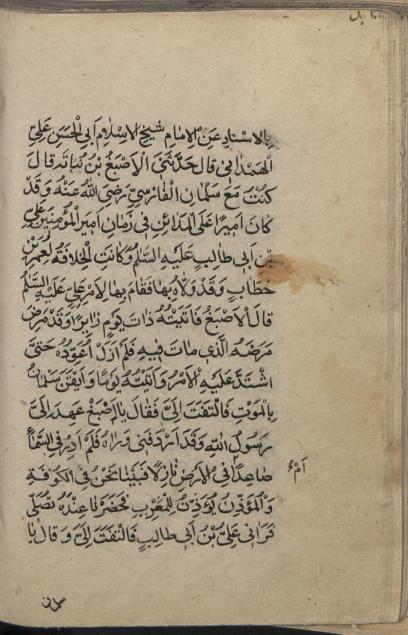 بالاسناد عن الامام شيخ الاسلام ابى الحسن على
الهمدانى قال حدثنى الاصبغ بن نباته قال
كنت مع سلمان الفارسى رضى الله عنه وقد
كان اميرا على المدائن فى زمان امير المؤمنين على
بن ابى طالب عليه السلم وكانت الخلافة لعمر بن
خطاب وقد ولاه بها فقام بها الامر على عليه السلم
قال الاصبغ فاتيته ذات يوم زايرا وقد مرض
مرضه الذى مات فيه فلم ازل اعوده حتى
اشتد عليه الامر واتيته يوما وايقن سلمان
بالموت فالتفت الى فقال يا اصبغ عهد الى
رسول الله وقد اردفنى وراه فلم ادر فى السما
صاعدا فى الارض نازلا فبينما نحن فى الكوفة
والمؤذن يؤذن للمغرب فحضرنا عنده نصلى
فرانى على بن ابى طالب فالتفت الى وقال يا
ام
سلمان